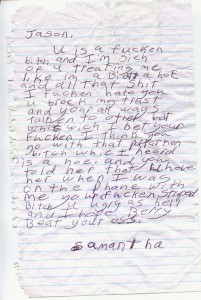 Jason,
U is a fucken
bitch and I'm sick
of u treating me
like im a Brat a hoe
and all that shit
I fucken hate you
u brock my trust
and your all ways
talken to other
bitch I bet your
fucken I think you
go with that
bitch who I heard
is a hoe. and you
told her that u love
her when I was
on the phone with
me your fucken stoped
Bitch u ugly as hell
and I hope Berry
Beat your ass.
Samantha